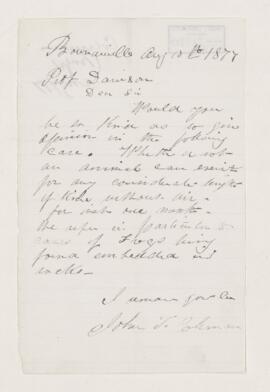 Bowmanville Aug 10th 1877
Prof Dawson
Dear Sir
Would you
be so kind as to give
opinion in the following
case. Whether or not
an animal can exist
for any considerable length
of time without air.
for instance one month.
We refer in particular to
cases of Frogs being
found embedded in
rocks.
I remain yours
John T.